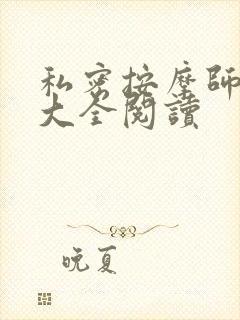 私密按摩師
大全閱讀
晚夏